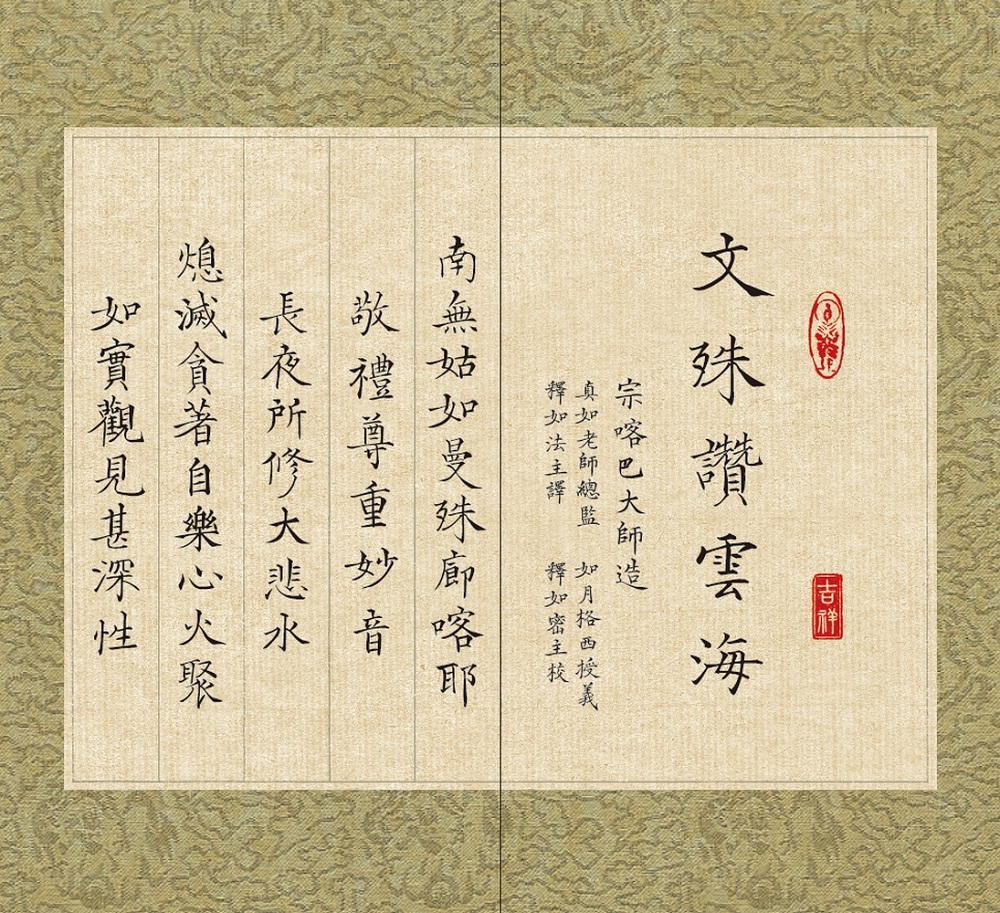 文殊讚雲海
宗喀巴大師造
真如老師總監 如月格西授義
釋如法主譯 釋如密主校
吉祥
南無姑如曼殊廊喀耶
敬禮尊重妙音
長夜所修大悲水
熄滅貪著自樂心火聚
如實觀見甚深性